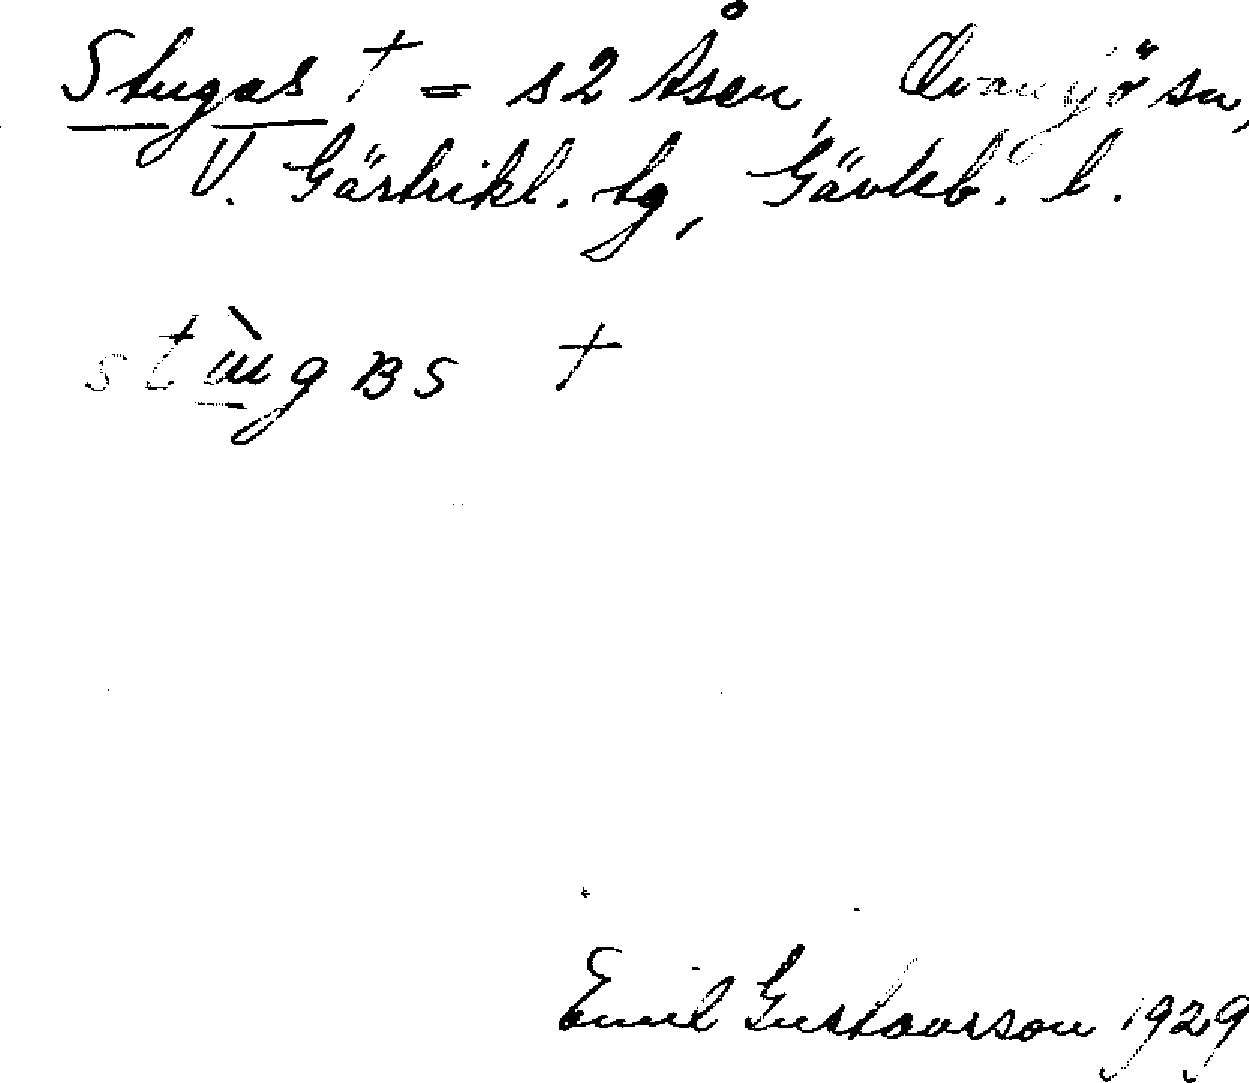 Stugas † = s2 Åsen, Ovansjö sn,
V. Gästrikl. tg, Gävleb. l.
†
Emil Gustavsson 1929